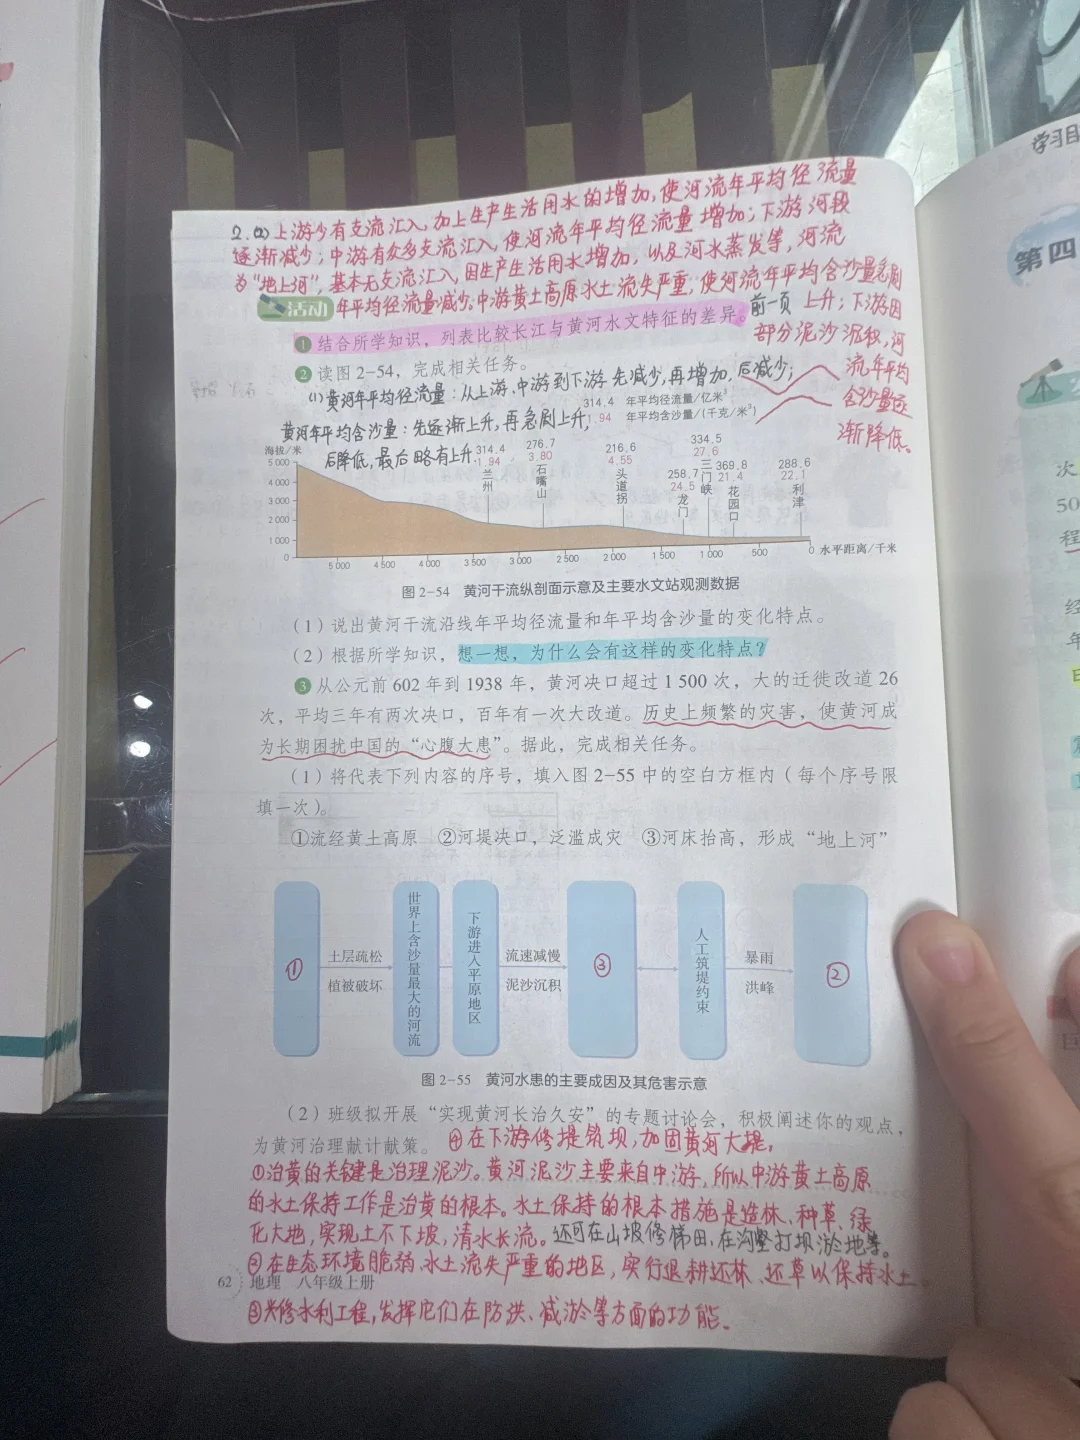 2.(2)上游少有支流汇入,加上生产生活用水的增加,使河流年平均径流量
逐渐减少;中游有众多支流汇入,使河流年平均径流量增加;下游河段
为“地上河”,基本无支流汇入,因生产生活用水增加,以及河水蒸发等,河流
年平均径流量减少。中游黄土高原水土流失严重,使河流年平均含沙量急剧
上升;下游因
部分泥沙沉积,河
流年平均
含沙量逐
渐降低。
活动
前一页
1 结合所学知识,列表比较长江与黄河水文特征的差异。
2 读图2-54,完成相关任务。
(1)黄河年平均径流量:从上游、中游到下游先减少,再增加,后减少;
黄河年平均含沙量:先逐渐上升,再急剧上升,
后降低,最后略有上升
314.4 年平均径流量/亿米³
1.94 年平均含沙量/(千克/米³)
海拔/米
5 000
4 000
3 000
2 000
1 000
0
314.4
1.94
兰州
276.7
3.80
石嘴山
216.6
4.55
头道拐
258.7
24.5
龙门
334.5
27.6
三门峡
369.8
21.4
花园口
288.6
22.1
利津
5 000 4 500 4 000 3 500 3 000 2 500 2 000 1 500 1 000 500 0 水平距离/千米
图2-54 黄河干流纵剖面示意及主要水文站观测数据
(1)说出黄河干流沿线年平均径流量和年平均含沙量的变化特点。
(2)根据所学知识,想一想,为什么会有这样的变化特点?
3 从公元前602年到1938年,黄河决口超过1 500次,大的迁徙改道26
次,平均三年有两次决口,百年有一次大改道。历史上频繁的灾害,使黄河成
为长期困扰中国的“心腹大患”。据此,完成相关任务。
(1)将代表下列内容的序号,填入图2-55中的空白方框内(每个序号限
填一次)。
①流经黄土高原 ②河堤决口,泛滥成灾 ③河床抬高,形成“地上河”
①
土层疏松
植被破坏
世界上含沙量最大的河流
下游进入平原地区
流速减慢
泥沙沉积
③
人工筑堤约束
暴雨
洪峰
②
图2-55 黄河水患的主要成因及其危害示意
(2)班级拟开展“实现黄河长治久安”的专题讨论会,积极阐述你的观点,
为黄河治理献计献策。 ④在下游修堤筑坝,加固黄河大堤,
①治黄的关键是治理泥沙。黄河泥沙主要来自中游,所以中游黄土高原
的水土保持工作是治黄的根本。水土保持的根本措施是造林、种草、绿
化大地,实现土不下坡,清水长流。还可在山坡修梯田、在沟壑打坝淤地等。
②在生态环境脆弱、水土流失严重的地区,实行退耕还林、还草以保持水土。
62 地理 八年级上册
③兴修水利工程,发挥它们在防洪、减淤等方面的功能。
学习目
第四
次
50
程
经
年